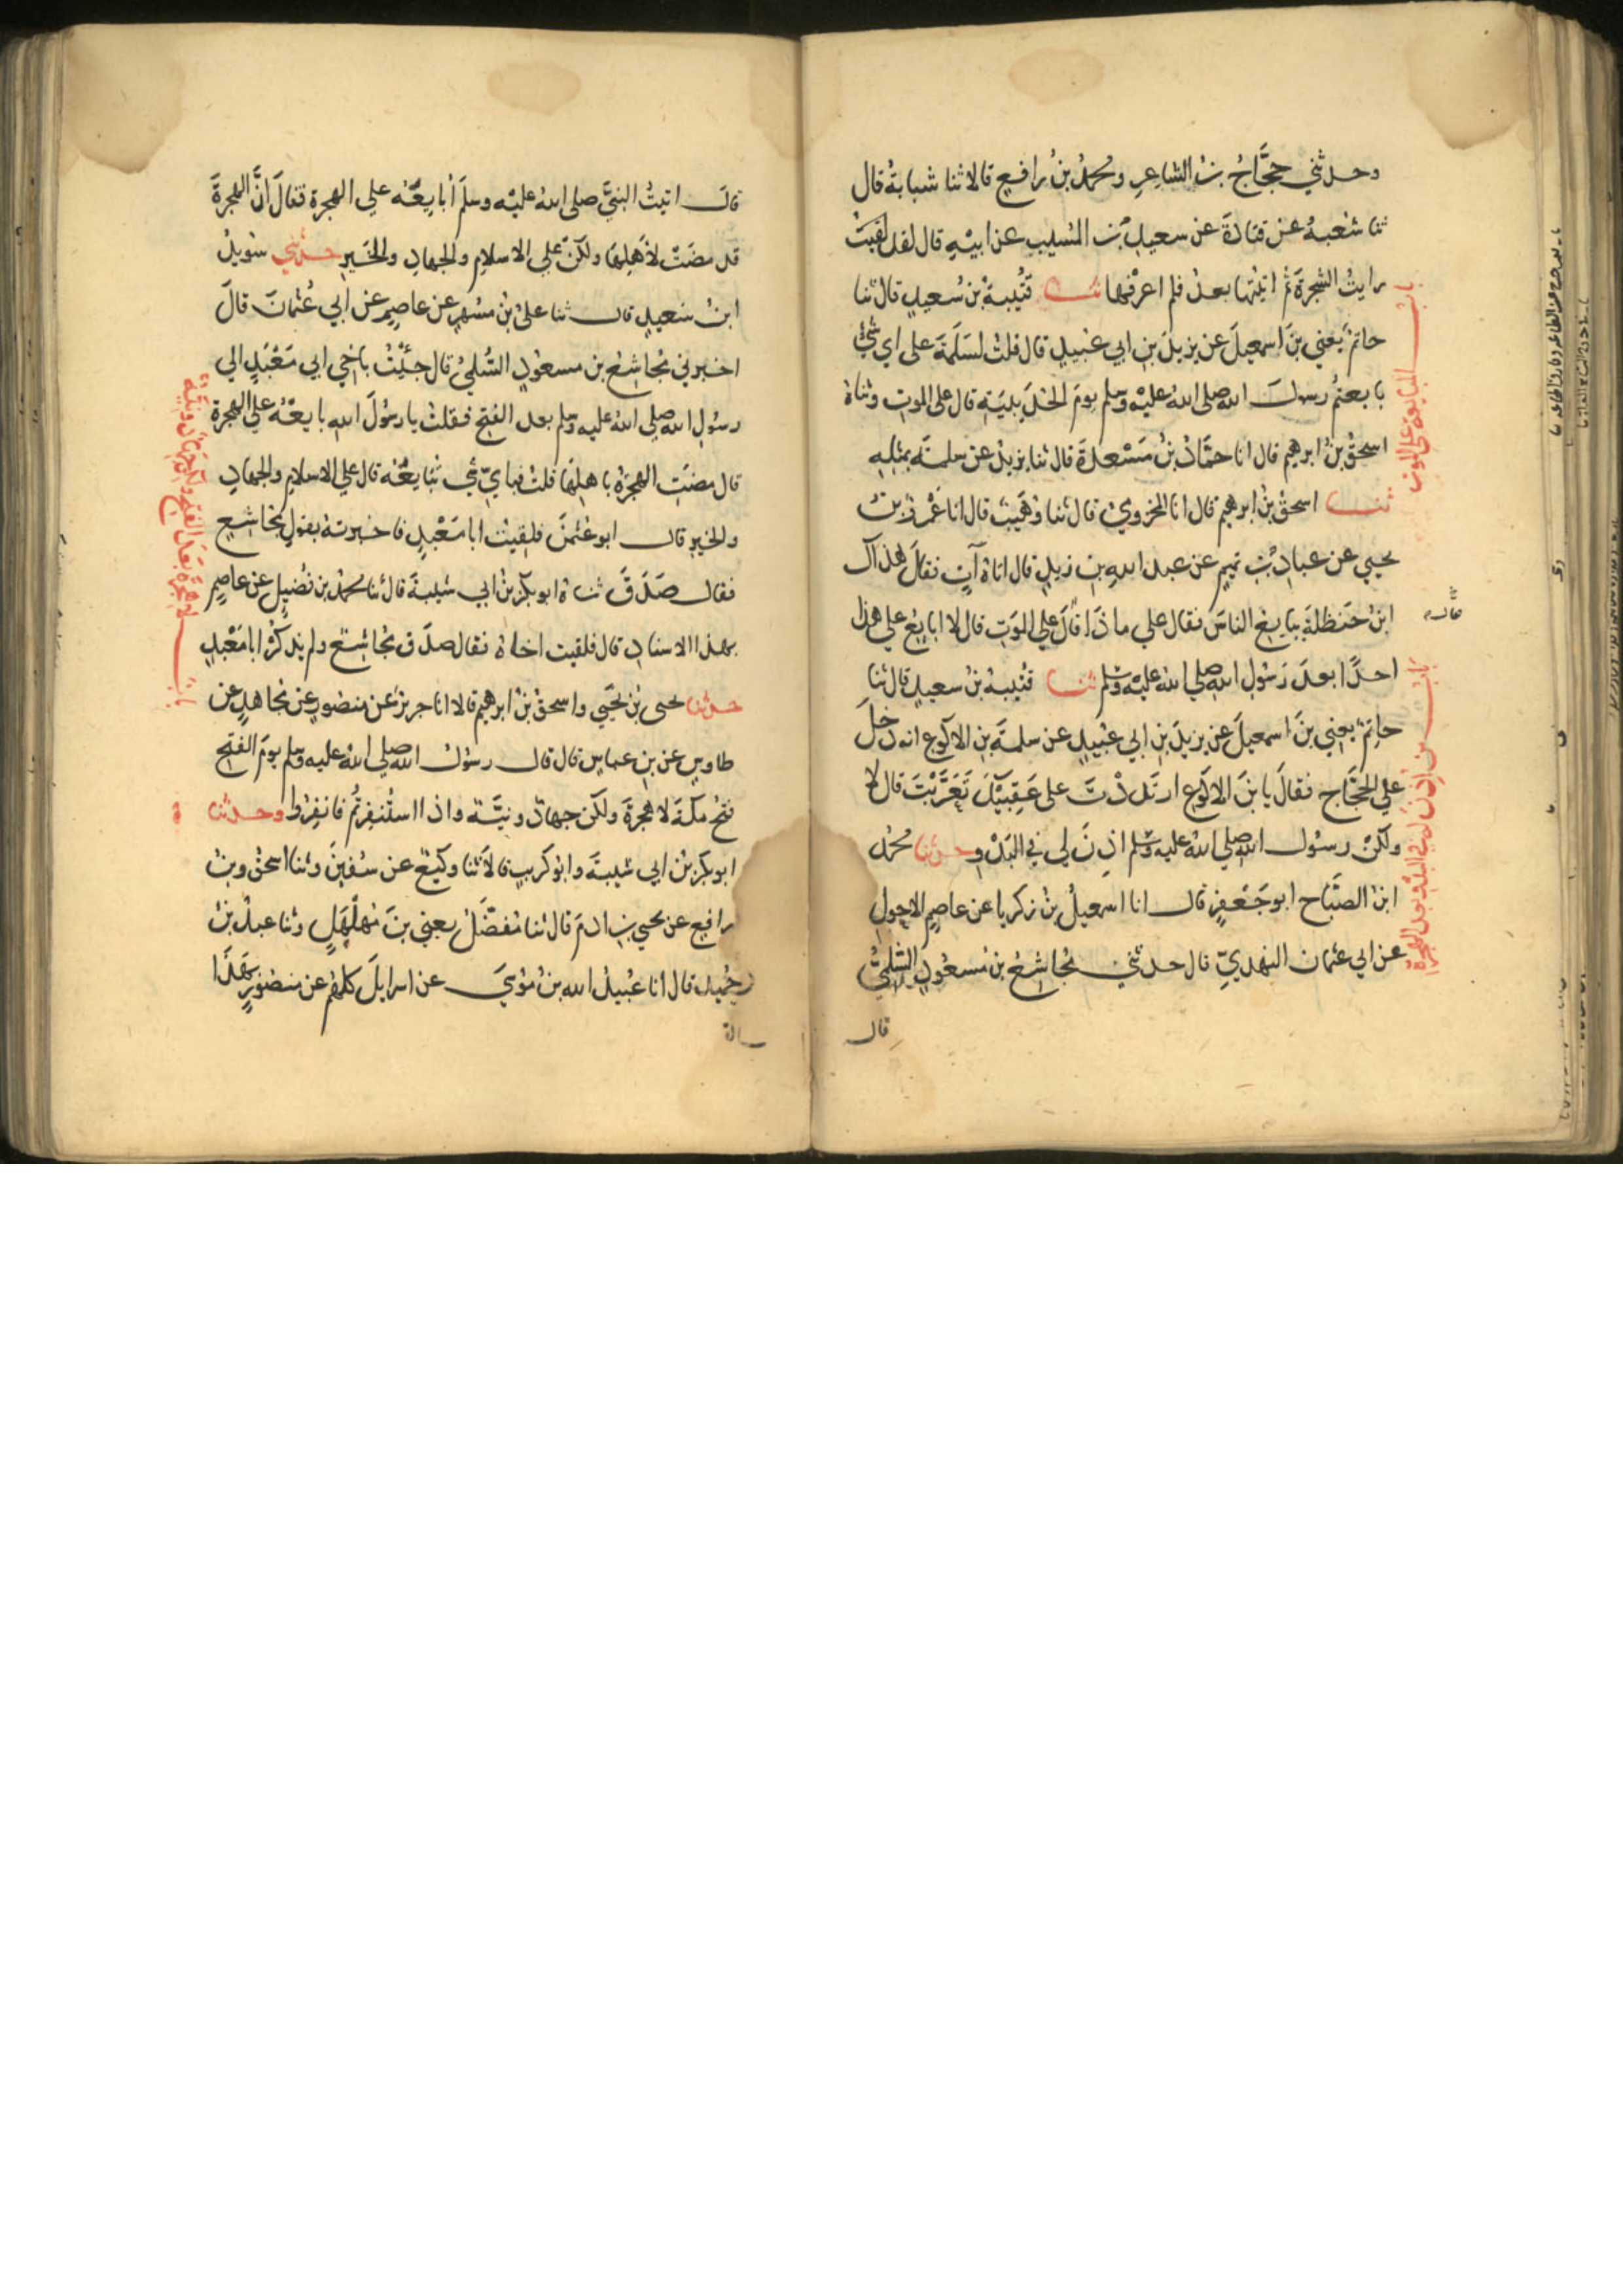 وحدثني حجَّاجُ بنُ الشاعرِ ومحمدُ بنُ رافعٍ قالا ثنا شبابةُ قال
ثنا شعبةُ عن قتادةَ عن سعيدِ بنِ المسيبِ عن ابيهِ قال لقد لقيت
رايتُ الشجرةَ ثم اتيتها بعدُ فلم اعرفها ثنا قتيبةُ بنُ سعيدٍ قال ثنا
حاتمٌ يعني بنَ اسمعيلَ عن يزيدَ بنِ ابي عبيدٍ قال قلتُ لسَلَمةَ على اي شيٍ
بايعتم رسولَ الله صلى الله عليه وسلم يومَ الحديبيَةِ قال على الموتِ وثناهُ
اسحقُ بنُ ابرهيم قال انا حمَّادُ بنُ مَسْعدةَ قال ثنا يزيدُ عن سلمةَ بمثلِهِ
ثنا اسحقُ بنُ ابرهيم قال انا المخزوميُ قال ثنا وهَيبُ قال انا عَمْرُو بنُ
يحيي عن عبادِ بنِ تميمٍ عن عبد اللهِ بنِ زيدٍ قال اتاهُ آتٍ فقالَ هذاك
ابنُ حنظلةَ يبايعُ الناسَ فقال علي ماذا قالَ علي الموتِ قال لا ابايعُ علي هذا
احدًا بعدَ رَسُولِ الله صلي الله عليه وسلم ثنا قتيبةُ بنُ سعيدٍ قال ثنا
حاتمٌ يعني بنَ اسمعيلَ عن يزيدَ بنِ ابي عبيدٍ عن سلمةَ بنِ الاكوعِ انه دَخلَ
علي الحجَّاجِ فقالَ يا بنَ الاكوعِ ارتَددْتَ على عَقِبَيْكَ تَعَرَّبْتَ قال لا
ولكنْ رسُولَ الله صلي الله عليه وسلم اذِنَ لي في البَدْوِ وحدثنا محمدُ
ابنُ الصَّبَّاحِ ابو جَعْفرٍ قال انا اسمعيلُ بنُ زكريا عن عاصمٍ الاحولِ
عن ابي عثمان النهديِّ قال حدثني مجُاشعُ بنُ مسعودٍ السُّلميُّ
قال
باب المبايعة على الموت
باب من اذن له في البدو بعد الهجرة
قالَ اتيتُ النبيَّ صلى الله عليه وسلمَ اُبايعُهُ علي الهجرة فقالَ انَّ الهجرةَ
قد مضَتْ لاَهلِها ولكنْ علي الاسلامِ والجهادِ والخيرِ حدثني سُويدُ
ابنُ سَعيدٍ قال ثنا عليُ بنُ مسُهرٍ عن عاصمٍ عن ابي عُثمانَ قالَ
اخبرني مُجاشعُ بن مسعودٍ السُّلميُ قال جئْتُ باخي ابي مَعْبَدٍ الي
رسُولِ الله صلي الله عليه وسلم بعد الفتح فقلتُ يا رسُولَ اللهِ بايعْهُ علي الهجرةِ
قال مضَتِ الهجرَةُ باهلِها قلتُ فباي شيٍ تُبايعُهُ قال علي الاسلامِ والجهادِ
والخيرِ قال ابو عثمنَ فلقيتُ ابا مَعْبدٍ فاخبرتهُ بقولِ مجُاشعٍ
فقال صَدَقَ ثناه ابو بكرِ بنُ ابي شيبةَ قال ثنا محمدُ بن فُضيلٍ عن عاصمٍ
بهذا الاسنادِ قال فلقيت اخاهُ فقال صدَق مجُاشعٌ ولم يذكُرْ ابا مَعْبدٍ
حدثنا يحيى بنُ يحَيي واسحقُ بنُ ابرهيم قالا انا جريرٌ عن منصورٍ عن مجاهدٍ عن
طاوسٍ عن بنِ عباسٍ قال قال رسُولُ الله صلي الله عليه وسلم يومَ الفتحِ
فتحِ مكةَ لا هجرةَ ولكن جهادٌ ونيَّةٌ واذا استُنفِرتُم فانفِرُوا وحدثنا
ابو بكرِ بنُ ابي شيبةَ وابُو كريبٍ قالا ثنا وكيعٌ عن سُفينَ وثنا اسحقُ وبنُ
رافعٍ عن يحيي بنِ ادمَ قال ثنا مُفضَّلٌ يعني بنَ مُهلهَلٍ وثنا عبدُ بنُ
حُميدٍ قال انا عُبيدُ الله بنُ مُوسَي عن اسرايلَ كلهُم عن منصُورٍ بهَذا
باب لا هجرة بعد الفتح ولكن جهاد ونية